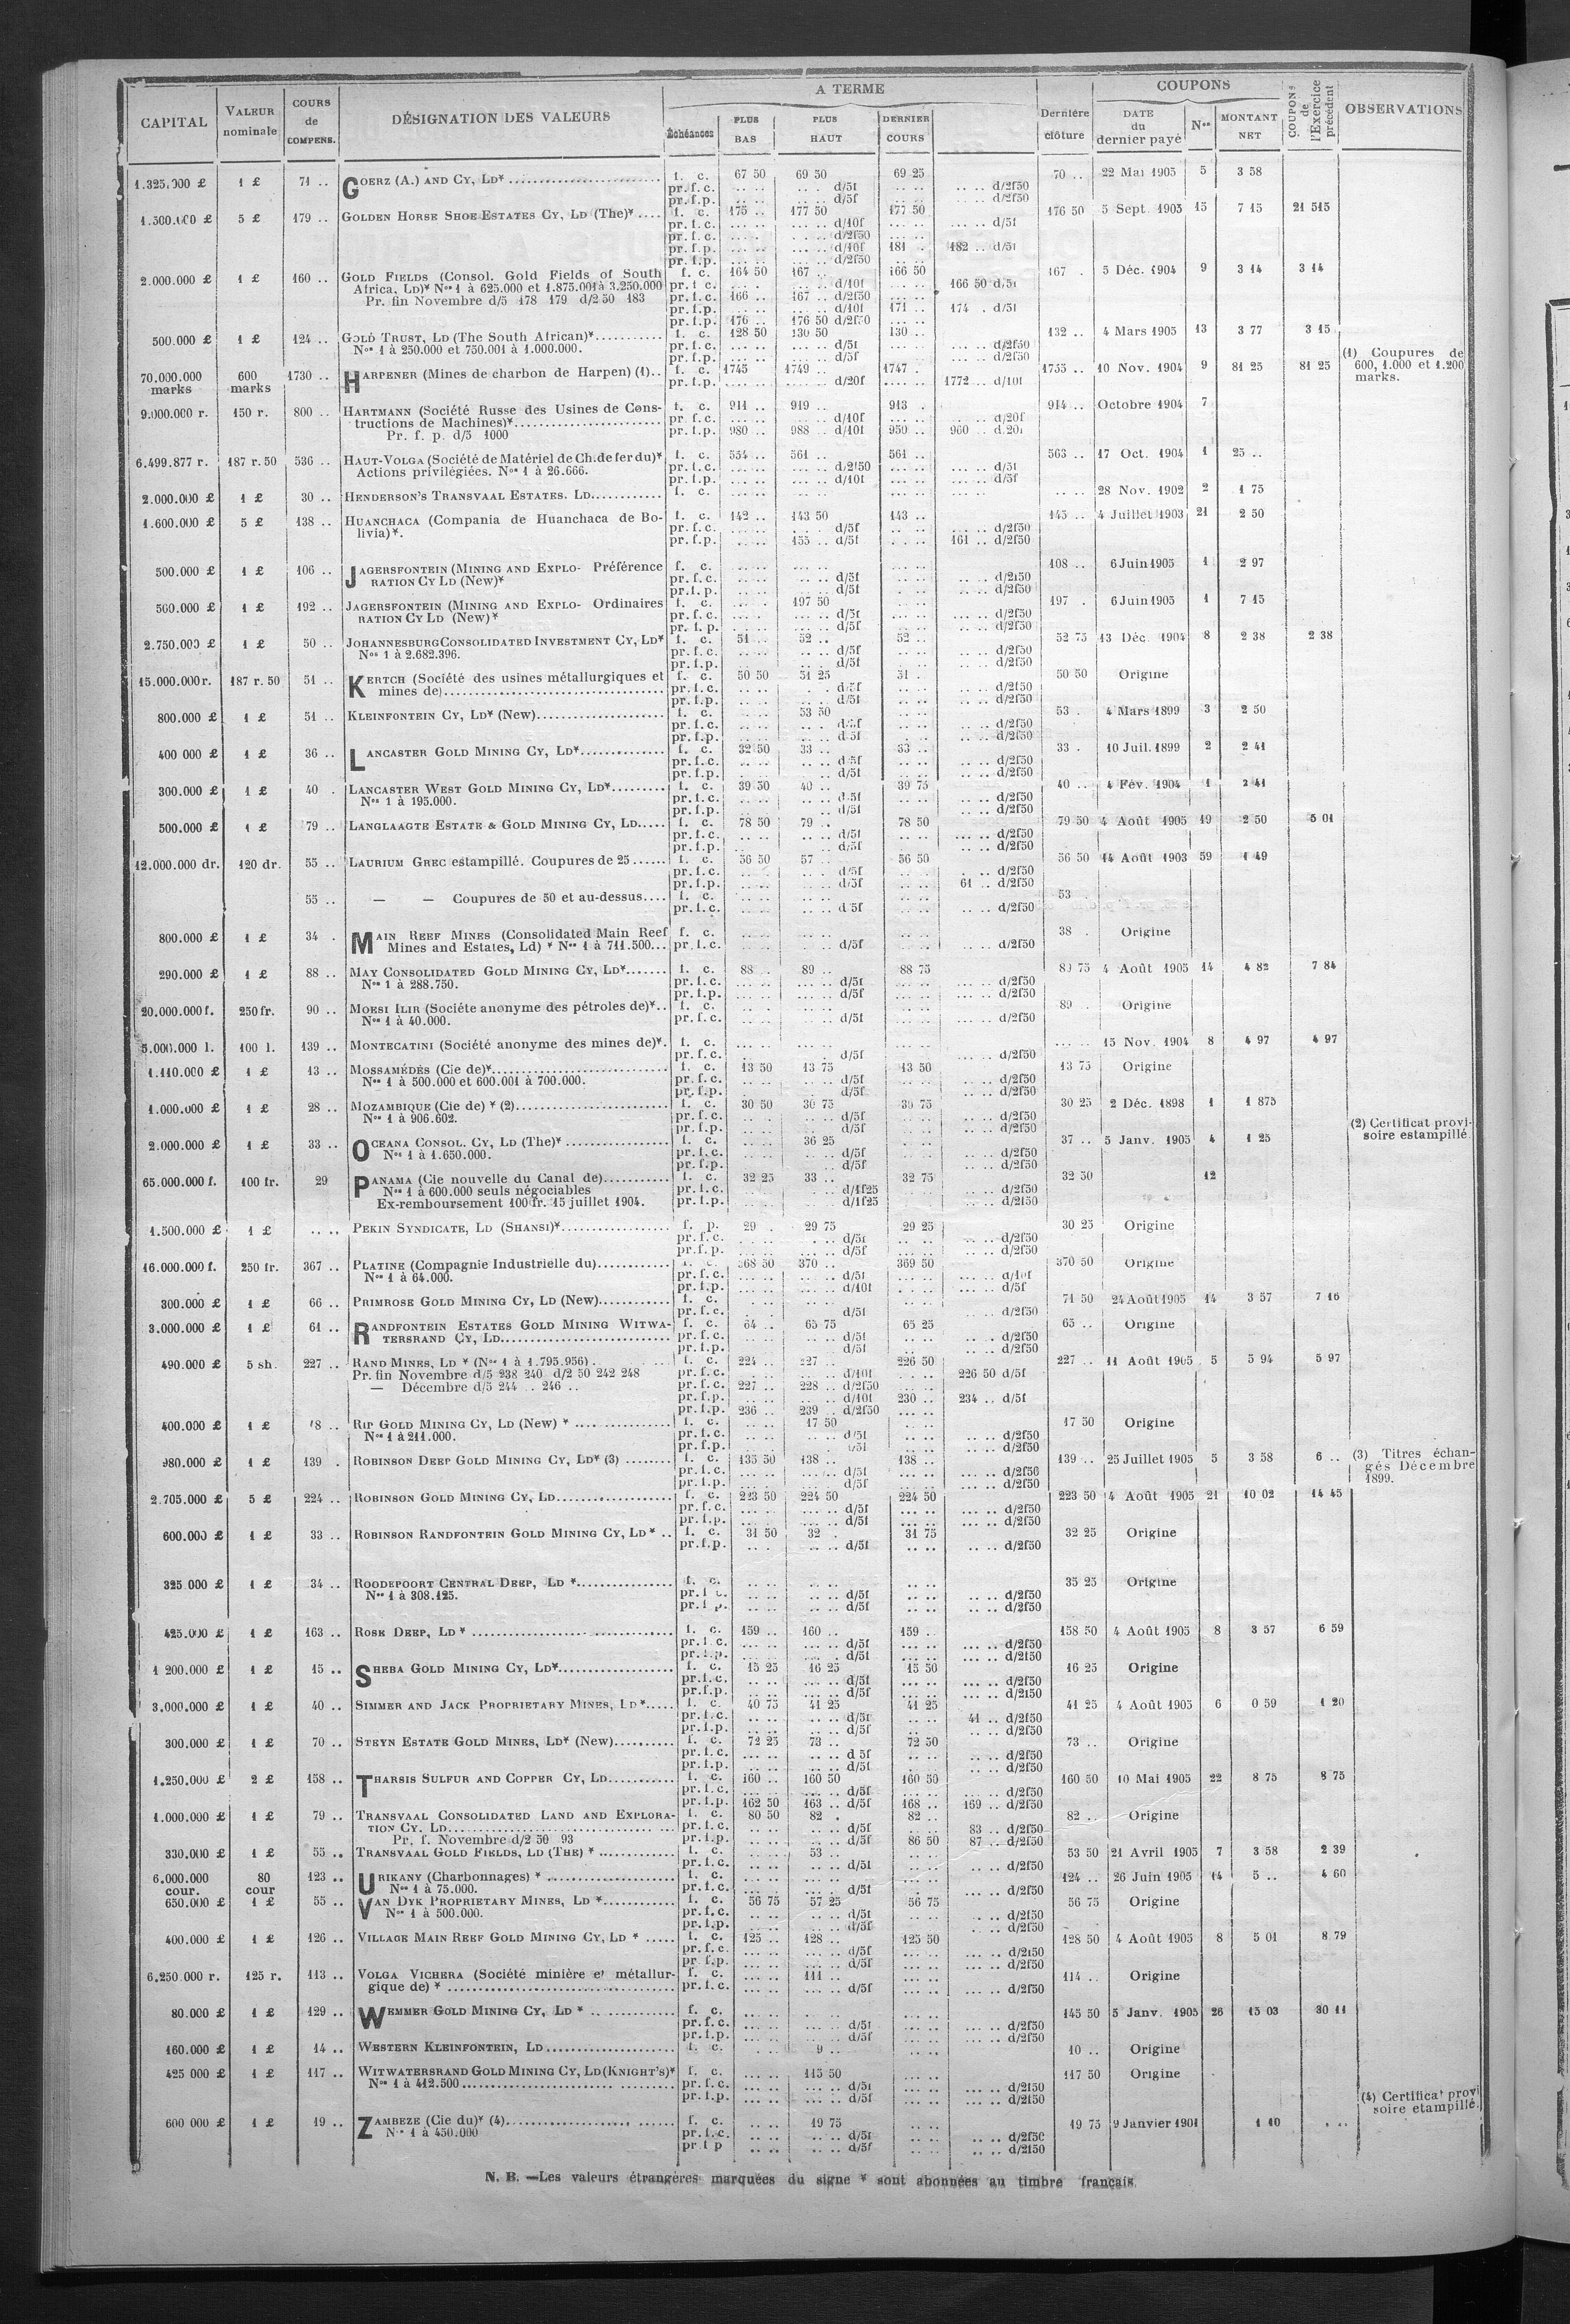 CAPITAL VALEUR nominale COURS de COMPENS. DÉSIGNATION DES VALEURS A TERME Échéances PLUS BAS PLUS HAUT DERNIER COURS Dernière clôture COUPONS DATE du dernier payé Nos MONTANT NET COUPONS de l'Exercice précédent OBSERVATIONS
1 £ 71 .. GOERZ (A.) AND CY, LD* f. c. 67 50 69 50 69 25 70 .. 22 Mai 1905 5 3 58
pr. f. c. d/5f d/2f50
pr. f. p. d/5f d/2f50
5 £ 179 .. GOLDEN HORSE SHOE ESTATES CY, LD (The)* f. c. 175 .. 177 50 177 50 176 50 5 Sept. 1905 15 7 15 21 515
pr. f. c. d/10f d/5f
pr. f. c. d/2f50
pr. f. p. d/10f 181 . 182 .. d/5f
pr. f. p. d/2f50
2.000.000 £ 1 £ 160 .. GOLD FIELDS (Consol. Gold Fields of South f. c. 164 50 167 .. 166 50 167 . 5 Déc. 1904 9 3 14 3 14
Africa, LD)* Nos 1 à 625.000 et 1.875.001 à 3.250.000 pr. f. c. d/10f 166 50 d/5f
Pr. fin Novembre d/5 178 179 d/2 50 183 pr. f. c. 166 .. 167 .. d/2f50
pr. f. p. d/10f 171 .. 174 . d/5f
pr. f. p. 176 .. 176 50 d/2f50
500.000 £ 1 £ 124 .. GOLD TRUST, LD (The South African)* f. c. 128 50 130 50 130 .. 132 .. 4 Mars 1905 13 3 77 3 15
Nos 1 à 250.000 et 750.001 à 1.000.000. pr. f. c. d/5f d/2f50
pr. f. p. d/5f d/2f50
70.000.000 marks 600 marks 1730 .. HARPENER (Mines de charbon de Harpen) (1).. f. c. 1745 1749 .. 1747 . 1755 .. 10 Nov. 1904 9 81 25 81 25 (1) Coupures de 600, 1.000 et 1.200 marks.
pr. f. p. d/20f 1772 .. d/10f
9.000.000 r. 150 r. 800 .. HARTMANN (Société Russe des Usines de Cons- f. c. 911 .. 919 .. 913 . 914 .. Octobre 1904 7
tructions de Machines)* pr. f. c. d/10f d/20f
Pr. f. p. d/5 1000 pr. f. p. 980 .. 988 .. d/10f 950 .. 960 .. d/20f
6.499.877 r. 187 r. 50 536 .. HAUT-VOLGA (Société de Matériel de Ch. de fer du)* f. c. 554 .. 561 .. 561 .. 563 .. 17 Oct. 1904 1 25 ..
Actions privilégiées. Nos 1 à 26.666. pr. f. c. d/2f50 d/5f
pr. f. p. d/10f d/5f
2.000.000 £ 1 £ 30 .. HENDERSON'S TRANSVAAL ESTATES. LD f. c. 28 Nov. 1902 2 1 75
1.600.000 £ 5 £ 138 .. HUANCHACA (Compania de Huanchaca de Bo- f. c. 142 .. 143 50 143 .. 145 .. 4 Juillet 1903 21 2 50
livia)*. pr. f. c. d/5f d/2f50
pr. f. p. 155 .. d/5f 161 .. d/2f50
500.000 £ 1 £ 106 .. JAGERSFONTEIN (MINING AND EXPLO- Préférence f. c. 108 .. 6 Juin 1905 1 2 97
RATION CY LD (New)* pr. f. c. d/5f d/2f50
pr. f. p. d/5f d/2f50
500.000 £ 1 £ 192 .. JAGERSFONTEIN (MINING AND EXPLO- Ordinaires f. c. 197 50 197 . 6 Juin 1905 1 7 15
RATION CY LD (New)* pr. f. c. d/5f d/2f50
pr. f. p. d/5f d/2f50
2.750.000 £ 1 £ 50 .. JOHANNESBURG CONSOLIDATED INVESTMENT CY, LD* f. c. 51 .. 52 .. 52 .. 52 75 13 Déc. 1904 8 2 38 2 38
Nos 1 à 2.682.396. pr. f. c. d/5f d/2f50
pr. f. p. d/5f d/2f50
15.000.000 r. 187 r. 50 51 .. KERTCH (Société des usines métallurgiques et f. c. 50 50 51 25 51 . 50 50 Origine
mines de) pr. f. c. d/5f d/2f50
pr. f. p. d/5f d/2f50
800.000 £ 1 £ 51 .. KLEINFONTEIN CY, LD* (New) f. c. 53 50 53 . 4 Mars 1899 3 2 50
pr. f. c. d/5f d/2f50
pr. f. p. d/5f d/2f50
400 000 £ 1 £ 36 .. LANCASTER GOLD MINING CY, LD* f. c. 32 50 33 .. 33 .. 33 . 10 Juil. 1899 2 2 41
pr. f. c. d/5f d/2f50
pr. f. p. d/5f d/2f50
300.000 £ 1 £ 40 . LANCASTER WEST GOLD MINING CY, LD* f. c. 39 50 40 .. 39 75 40 .. 4 Fév. 1904 1 2 41
Nos 1 à 195.000. pr. f. c. d/5f d/2f50
pr. f. p. d/5f d/2f50
500.000 £ 1 £ 79 .. LANGLAAGTE ESTATE & GOLD MINING CY, LD f. c. 78 50 79 .. 78 50 79 50 4 Août 1905 19 2 50 5 01
pr. f. c. d/5f d/2f50
pr. f. p. d/5f d/2f50
12.000.000 dr. 120 dr. 55 .. LAURIUM GREC estampillé. Coupures de 25 f. c. 56 50 57 .. 56 50 56 50 14 Août 1903 59 1 49
pr. f. c. d/5f d/2f50
pr. f. p. d/5f 61 .. d/2f50
55 .. — — Coupures de 50 et au-dessus f. c. 53 .
pr. f. c. d/5f d/2f50
800.000 £ 1 £ 34 . MAIN REEF MINES (Consolidated Main Reef f. c. 38 . Origine
Mines and Estates, Ld) * Nos 1 à 711.500 pr. f. c. d/5f d/2f50
290.000 £ 1 £ 88 .. MAY CONSOLIDATED GOLD MINING CY, LD* f. c. 88 . 89 .. 88 75 89 75 4 Août 1905 14 4 82 7 84
Nos 1 à 288.750. pr. f. c. d/5f d/2f50
pr. f. p. d/5f d/2f50
20.000.000 f. 250 fr. 90 .. MOESI ILIR (Société anonyme des pétroles de)* f. c. 89 . Origine
Nos 1 à 40.000. pr. f. c. d/5f d/2f50
5.000.000 l. 100 l. 139 .. MONTECATINI (Société anonyme des mines de)*. f. c. 15 Nov. 1904 8 4 97 4 97
pr. f. c. d/5f d/2f50
1.110.000 £ 1 £ 13 .. MOSSAMÉDÈS (Cie de)* f. c. 13 50 13 75 13 50 13 75 Origine
Nos 1 à 500.000 et 600.001 à 700.000. pr. f. c. d/5f d/2f50
pr. f. p. d/5f d/2f50
1.000.000 £ 1 £ 28 .. MOZAMBIQUE (Cie de) * (2) f. c. 30 50 30 75 30 75 30 25 2 Déc. 1898 1 1 875
Nos 1 à 906.602. pr. f. c. d/5f d/2f50
pr. f. p. d/5f d/2f50 (2) Certificat provi-
2.000.000 £ 1 £ 33 .. OCEANA CONSOL. CY, LD (The)* f. c. 36 25 37 .. 5 Janv. 1905 4 1 25 soire estampillé.
Nos 1 à 1.650.000. pr. f. c. d/5f d/2f50
pr. f. p. d/5f d/2f50
65.000.000 f. 100 fr. 29 PANAMA (Cie nouvelle du Canal de) f. c. 32 25 33 .. 32 75 32 50 12
Nos 1 à 600.000 seuls négociables pr. f. c. d/1f25 d/2f50
Ex-remboursement 100 fr. 15 juillet 1904. pr. f. p. d/1f25 d/2f50
1.500.000 £ 1 £ .. .. PEKIN SYNDICATE, LD (SHANSI)* f. p. 29 . 29 75 29 25 30 25 Origine
pr. f. c. d/5f d/2f50
pr. f. p. d/5f d/2f50
16.000.000 f. 250 fr. 367 .. PLATINE (Compagnie Industrielle du) 368 50 370 .. 369 50 370 50 Origine
Nos 1 à 64.000. pr. f. c. d/5f d/10f
pr. f. p. d/10f d/5f
300.000 £ 1 £ 66 .. PRIMROSE GOLD MINING CY, LD (New) f. c. 71 50 24 Août 1905 14 3 57 7 16
pr. f. c. d/5f d/2f50
3.000.000 £ 1 £ 61 .. RANDFONTEIN ESTATES GOLD MINING WITWA- f. c. 64 .. 65 75 65 25 65 .. Origine
TERSRAND CY, LD pr. f. c. d/5f d/2f50
pr. f. p. d/5f d/2f50
490.000 £ 5 sh. 227 .. RAND MINES, LD * (Nos 1 à 1.795.956) f. c. 224 .. 227 .. 226 50 227 .. 11 Août 1905 5 5 94 5 97
Pr. fin Novembre d/5 238 240 d/2 50 242 248 pr. f. c. d/10f 226 50 d/5f
— Décembre d/5 244 .. 246 .. pr. f. c. 227 .. 228 .. d/2f50
pr. f. p. d/10f 230 .. 234 .. d/5f
pr. f. p. 236 .. 239 .. d/2f50
400.000 £ 1 £ RIP GOLD MINING CY, LD (New) * f. c. 17 50 17 50 Origine
Nos 1 à 211.000. pr. f. c. d/5f d/2f50
pr. f. p. d/2f50
980.000 £ 1 £ 139 . ROBINSON DEEP GOLD MINING CY, LD* (3) f. c. 135 50 138 .. 138 .. 139 .. 25 Juillet 1905 5 3 58 6 .. (3) Titres échan-
pr. f. c. d/5f d/2f50 gés Décembre
pr. f. p. d/5f d/2f50 1899.
2.705.000 £ 5 £ 224 .. ROBINSON GOLD MINING CY, LD f. c. 223 50 224 50 224 50 223 50 4 Août 1905 21 10 02 14 45
pr. f. c. d/5f d/2f50
pr. f. p. d/5f d/2f50
600.000 £ 1 £ 33 .. ROBINSON RANDFONTEIN GOLD MINING CY, LD * f. c. 31 50 32 . 31 75 32 25 Origine
pr. f. p. d/5f d/2f50
325 000 £ 1 £ 34 .. ROODEPOORT CENTRAL DEEP, LD * f. c. 35 25 Origine
Nos 1 à 308.125. pr. f. c. d/5f d/2f50
pr. f. p. d/5f d/2f50
425.000 £ 1 £ 163 .. ROSE DEEP, LD * f. c. 159 .. 160 .. 159 .. 158 50 4 Août 1905 8 3 57 6 59
pr. f. c. d/5f d/2f50
pr. f. p. d/5f d/2f50
1 200.000 £ 1 £ 15 .. SHEBA GOLD MINING CY, LD* f. c. 15 25 16 25 15 50 16 25 Origine
pr. f. c. d/5f d/2f50
pr. f. p. d/5f d/2f50
3.000.000 £ 1 £ 40 .. SIMMER AND JACK PROPRIETARY MINES, LD * f. c. 40 75 41 25 41 25 41 25 4 Août 1905 6 0 59 1 20
pr. f. c. d/5f 41 .. d/2f50
pr. f. p. d/5f d/2f50
300.000 £ 1 £ 70 .. STEYN ESTATE GOLD MINES, LD* (New) f. c. 72 25 73 .. 72 50 73 .. Origine
pr. f. c. d 5f d/2f50
pr. f. p. d/5f d/2f50
1.250.000 £ 2 £ 158 .. THARSIS SULFUR AND COPPER CY, LD f. c. 160 .. 160 50 160 50 160 50 10 Mai 1905 22 8 75 8 75
pr. f. c. d/5f d/2f50
pr. f. p. 162 50 163 .. d/5f 168 .. 169 .. d/2f50
1.000.000 £ 1 £ 79 .. TRANSVAAL CONSOLIDATED LAND AND EXPLORA- f. c. 80 50 82 . 82 .. 82 .. Origine
TION CY. LD pr. f. c. d/5f 83 .. d/2f50
Pr. f. Novembre d/2 50 93 pr. f. p. d/5f 86 50 87 .. d/2f50
330.000 £ 1 £ 55 .. TRANSVAAL GOLD FIELDS, LD (THE) * f. c. 53 .. 53 50 21 Avril 1905 7 3 58 2 39
pr. f. c. d/5f d/2f50
6.000.000 cour. 80 cour 123 .. URIKANY (Charbonnages) * f. c. 124 .. 26 Juin 1905 14 5 .. 4 60
Nos 1 à 75.000. pr. f. c. d/5f d/2f50
650.000 £ 1 £ 55 .. VAN DYK PROPRIETARY MINES, LD * f. c. 56 75 57 25 56 75 56 75 Origine
Nos 1 à 500.000. pr. f. c. d/5f d/2f50
pr. f. p. d/5f d/2f50
400.000 £ 1 £ 126 .. VILLAGE MAIN REEF GOLD MINING CY, LD * f. c. 125 .. 128 .. 125 50 128 50 4 Août 1905 8 5 01 8 79
pr. f. c. d/5f d/2f50
pr. f. p. d/5f d/2f50
6.250.000 r. 125 r. 113 .. VOLGA VICHERA (Société minière et métallur- f. c. 111 .. 114 .. Origine
gique de) * pr. f. c. d/5f d/2f50
80.000 £ 1 £ 129 .. WEMMER GOLD MINING CY, LD * f. c. 145 50 5 Janv. 1905 26 15 03 30 11
pr. f. c. d/5f d/2f50
pr. f. p. d/5f d/2f50
160.000 £ 1 £ 14 .. WESTERN KLEINFONTEIN, LD f. c. 9 .. 10 .. Origine
425 000 £ 1 £ 117 .. WITWATERSRAND GOLD MINING CY, LD (KNIGHT'S)* f. c. 115 50 117 50 Origine
Nos 1 à 412.500 pr. f. c. d/5f d/2f50
pr. f. p. d/5f d/2f50 (4) Certificat provi
600 000 £ 1 £ 19 .. ZAMBEZE (Cie du)* (4) f. c. 19 75 19 75 9 Janvier 1901 1 10 soire etampillé.
Nos 1 à 450.000 pr. f. c. d/5f d/2f50
pr f p d/5f d/2f50
N. B. —Les valeurs étrangères marquées du signe * sont abonnées au timbre français.